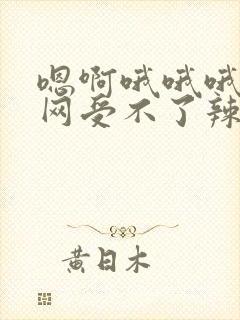 嗯啊哦哦哦
网受不了辣
黄日木